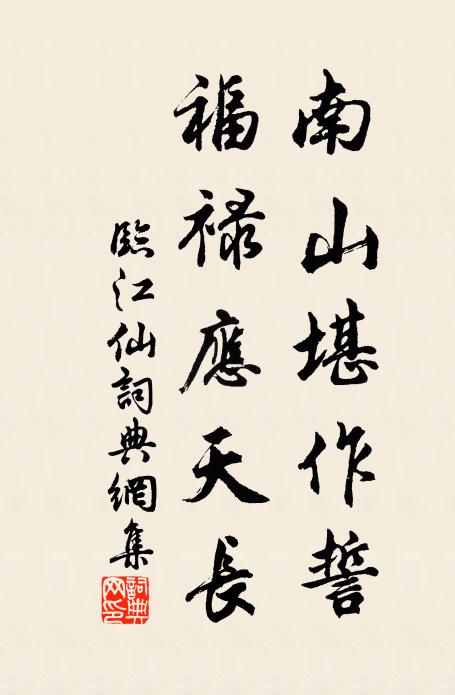 南山堪作誓
福祿應天長
臨江仙詞典網集
詞典网印